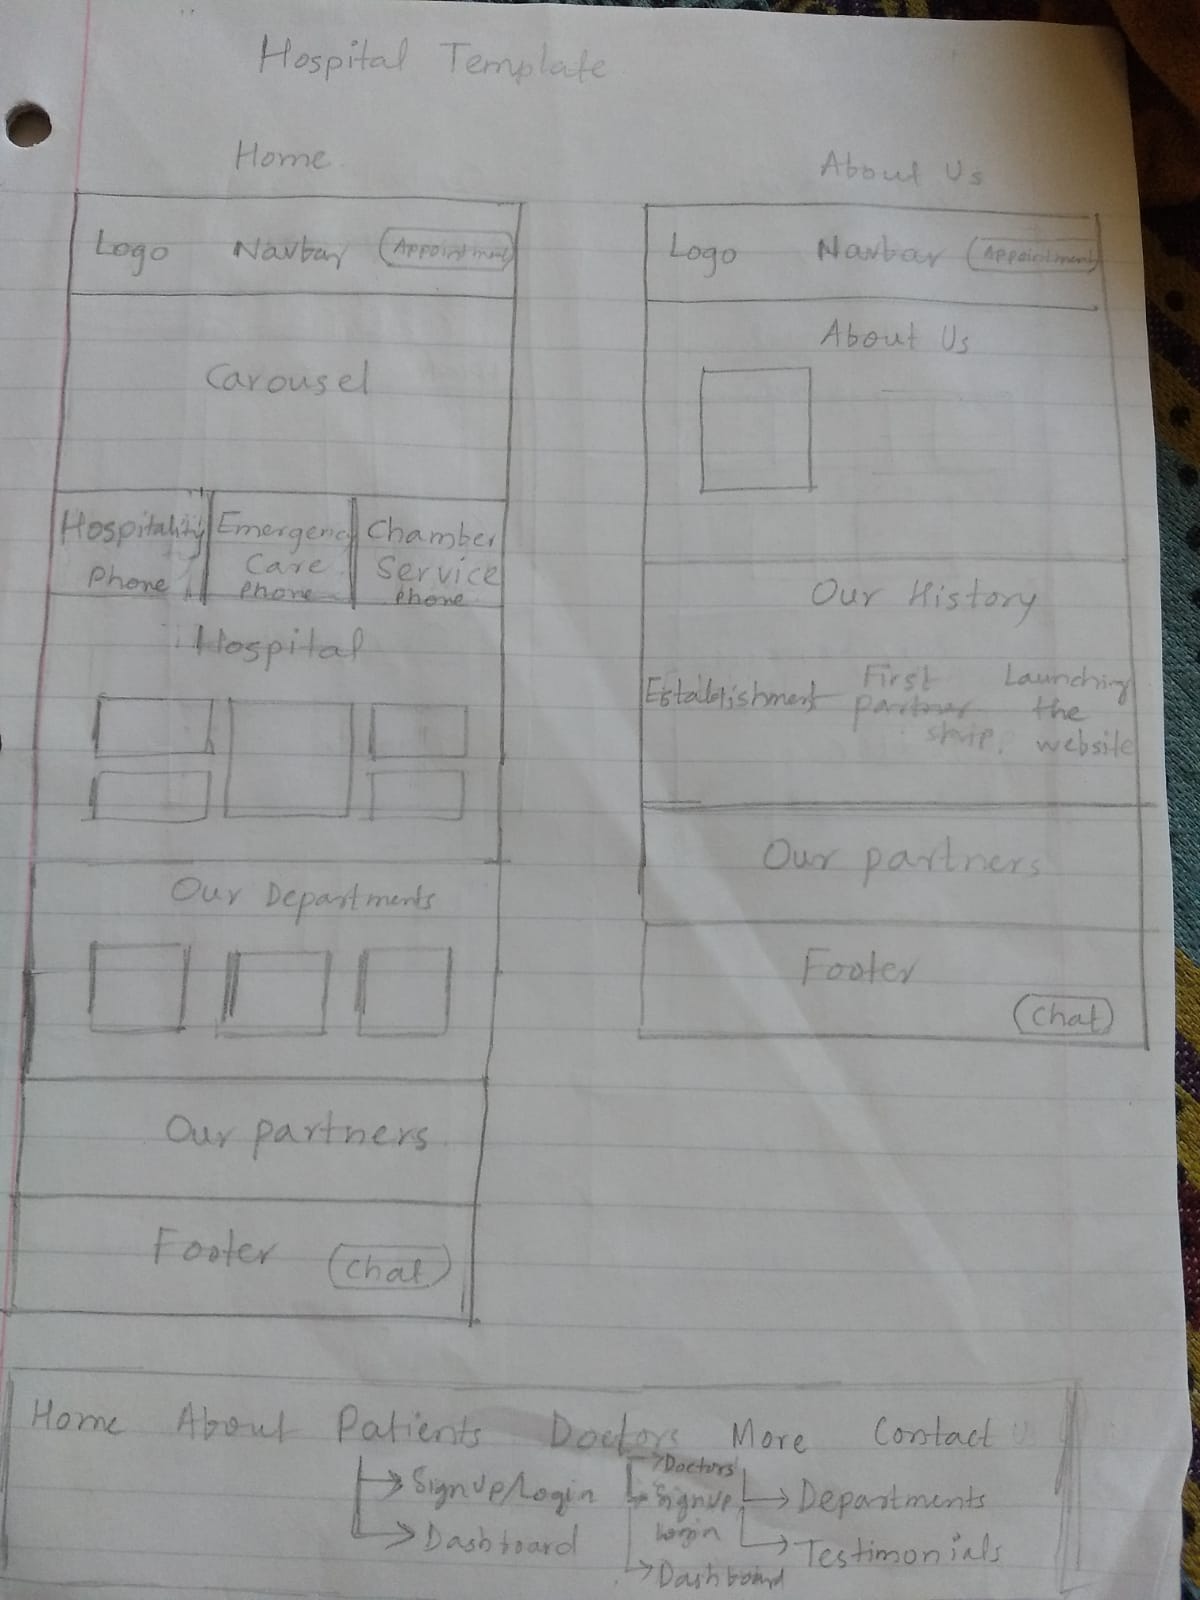 Hospital Template
Home
Logo Navbar Appointment
Carousel
Hospitality Phone
Emergency Care Phone
Chamber Service Phone
Hospital
Our Departments
Our partners
Footer Chat
About Us
Logo Navbar Appointment
About Us
Our History
Establishment
First partner ship.
Launching the website
Our partners
Footer
Chat
Home About Patients Doctors More Contact
Signup/Login
Dashboard
Doctors
Signup
Login
Dashboard
Departments
Testimonials